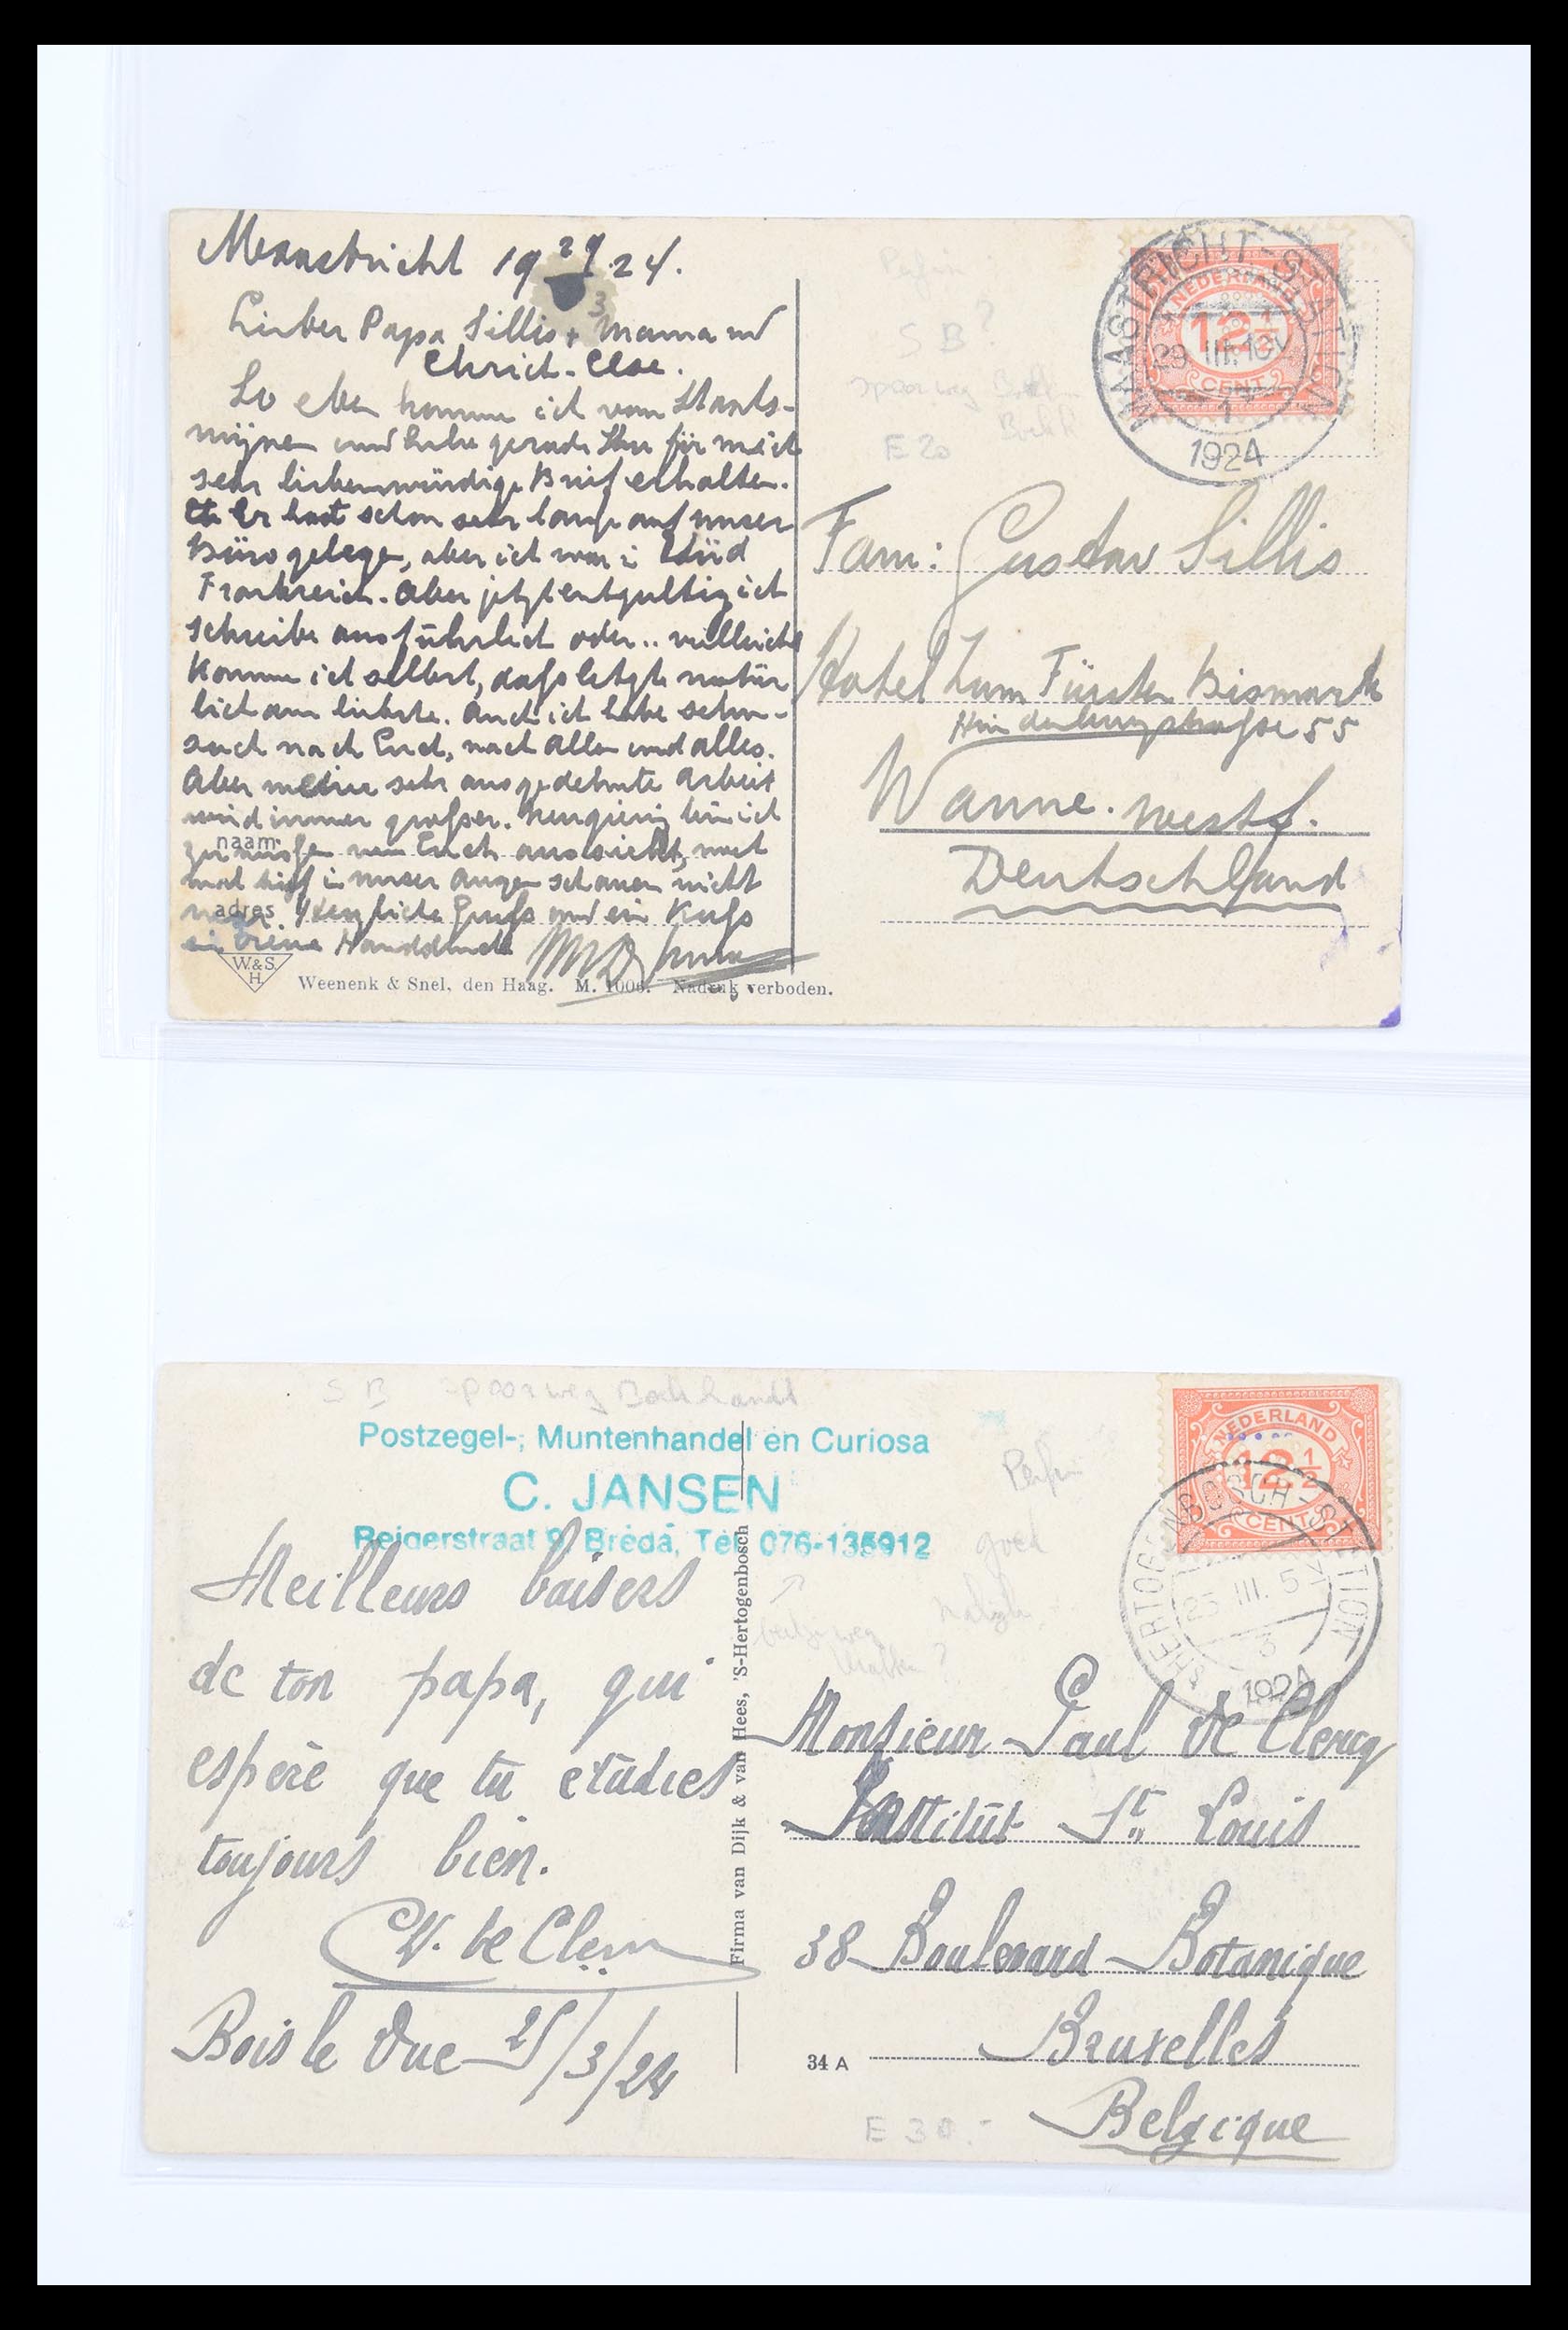 Maastricht 19 29/3 24.
Lieber Papa Sillis + Mama und
Christ. Else.
So eben komme ich vom Staats-
mijnen und habe gerade Ihre für mich
sehr liebenswürdige Brief erhalten.
Er hast schon sehr lange auf unser
Büro gelegen, aber ich war in Süd
Frankreich. Aber jetzt entgultig ich
schreibe ausführlich oder .. vielleicht
komme ich selbert, dass letzte natür
lich am liebste. Auch ich habe sehn-
such nach Euch, nach allen und alles.
Aber meine sehr ausgedehnte Arbeit
wird immer grosser. Neugierig bin ich
Euch aussieht, noch
mal tief in unser Augen schauen nicht
Herzliche Gruss und ein Kuss
Handdruck
naam
adres
W.&S.
H.
Weenenk & Snel, den Haag. M. 1006. Nadruk verboden.
Perfin
S B ?
spoorweg
E 20
MAASTRICHT-STATION
29 III. 10V
1
1924
NEDERLAND
12½
CENT
Fam: Gustav Sillis
Hotel Zum Fürsten Bismark
Hindenburgstrasse 55
Wanne. Westf.
Deutschland
S B spoorweg Boekhandl
Postzegel-, Muntenhandel en Curiosa
C. JANSEN
Reigerstraat 9, Breda, Tel. 076-135912
Meilleurs baisers
de ton papa, qui
espère que tu etudies
toujours bien.
V. de Clercq
Bois le Duc 25/3/24
Firma van Dijk & van Hees, 'S-Hertogenbosch
Perfin
goed
NEDERLAND
12½
CENT
'S HERTOGENBOSCH-STATION
25 III. 5
3
1924
Monsieur Paul de Clercq
Institut St. Louis
38 Boulevard Botanique
Bruxelles
34 A
Belgique
E 30.-